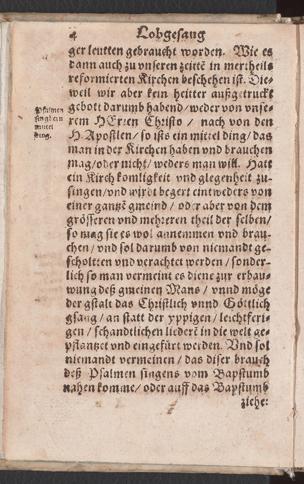 4 Lobgesang
ger leutten gebraucht worden. Wie es
dann auch zů vnseren zeitẽ in mertheils
reformierten Kirchen beschehen ist. Die-
weil wir aber kein heitter außgetruckt
gebott darumb habend / weder von vnse-
rem HErren Christo / nach von den
H. Apostlen / so ists ein mittel ding / das
man in der Kirchen haben vnd brauchen
mag / oder nicht / weders man will. Hatt
ein Kirch komligkeit vnd glegenheit zu-
singen / vnd wirdt begert eintweders von
einer gantzẽ gmeind / oder aber von dem
grösseren vnd mehreren theil der selben /
so mag sie es wol annemmen vnd brau-
chen / vnd sol darumb von niemandt ge-
scholtten vnd verachtet werden / sonder-
lich so man vermeint es diene zur erbau-
wung deß gmeinen Mans / vnnd möge
der gstalt das Christlich vnnd Göttlich
gsang / an statt der yppigen / leichtferi-
gen / schandtlichen liederẽ in die welt ge-
pflantzet vnd eingefürt werden. Vnd sol
niemandt vermeinen / das diser brauch
deß Psalmen singens vom Bapstumb
nahen komme / oder auff das Bapstumb
ziehe:
Psalmen
singen ein
mittel
ding.